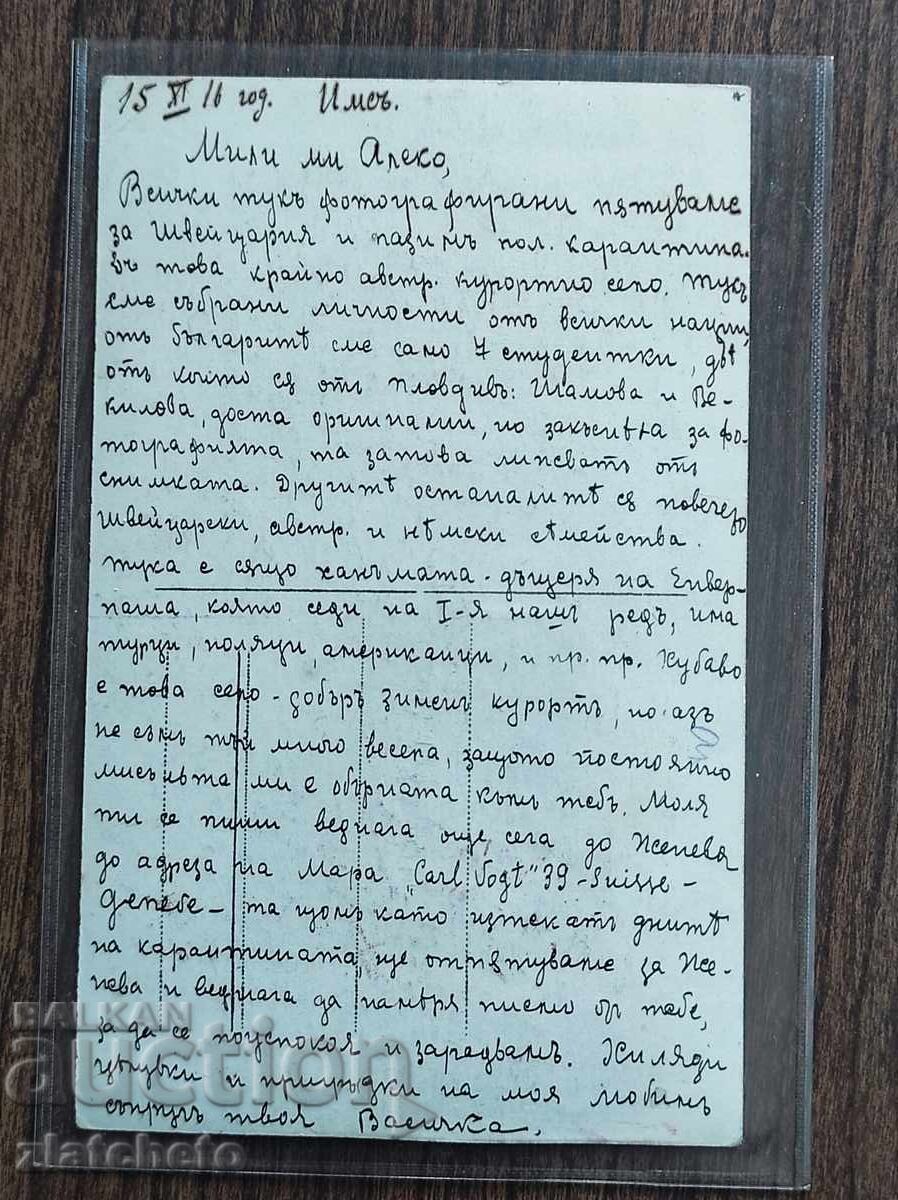 15 XI 16 год. Имсъ.
Мили ми Алеко,
Всички тукъ фотографирани пѫтуваме
за Швейцария и пазимъ пол. карантина.
въ това крайно австр. курортно село. Тукъ
сме събрани личности отъ всички нации,
отъ българитѣ сме само 7 студентки, двѣ
отъ който сѫ отъ Пловдивъ: Шамова и Ве-
килова, доста оригинални, но закъснѣха за фо-
тографията, та затова липсватъ отъ
снимката. Другитѣ останалитѣ сѫ повечето
швейцарски, австр. и нѣмски сѣмейства.
тука е сѫщо ханъмата - дъщеря на Енвер-
паша, която седи на I-я нашъ редъ, има
турци, поляци, американци, и пр. пр. Хубаво
е това село - добъръ зименъ курортъ, но азъ
не съмъ тъй много весела, защото постоянно
мисъльта ми е обърната къмъ тебъ. Моля
ти се пиши веднага още сега до Женева
до адреза на Мара „Carl Vogt" 39 - Suisse -
Genève - та щомъ като изтекатъ днитѣ
на карантината, ще отпѫтуваме за Же-
нева и веднага да намѣря писмо отъ тебе,
за да се поуспокоя и зарадвамъ. Хиляди
цѣлувки и пригръдки на моя любимъ
съпругъ твоя Васичка.
BALKAN
auction
zlatcheto